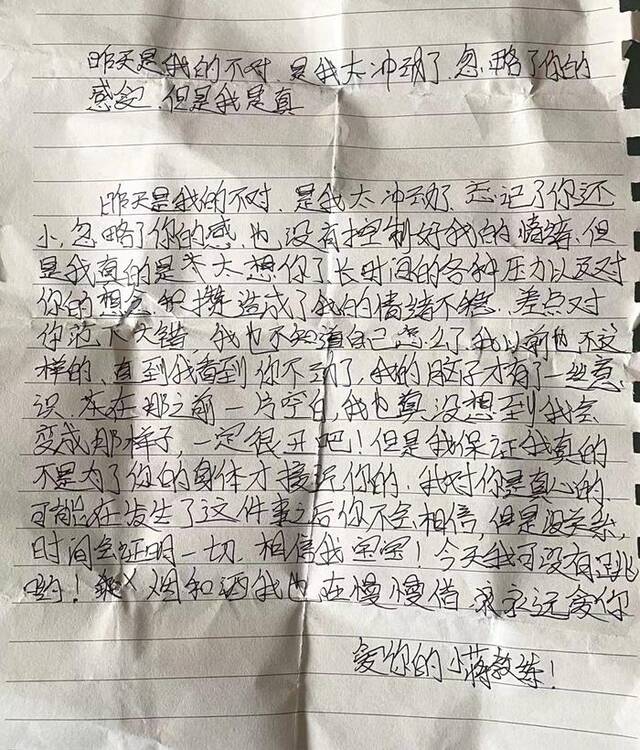 昨天是我的不对.是我太冲动了.忽略了你的
感受 但是我是真
昨天是我的不对.是我太冲动了.忘记了你还
小.忽略了你的感.也没有控制好我的情绪.但
是我真的是太想你了长时间的各种压力以及对
你的想念积攒造成了我的情绪不稳.差点对
你范下大错 我也不知道自己怎么了.我以前也不这
样的.直到我看到你不动了.我的脑子才有了一丝意
识.在那之前一片空白我也真没想到我会
变成那样子,一定很丑吧!但是我保证我真的
不是为了你的身体才接近你的.我对你是真心的
可能在发生了这件事之后你不会相信,但是没关系,
时间会证明一切.相信我宝宝!今天我可没有
哟!烟和酒我也在慢慢借.永永远爱你
爱你的小蒋教练!